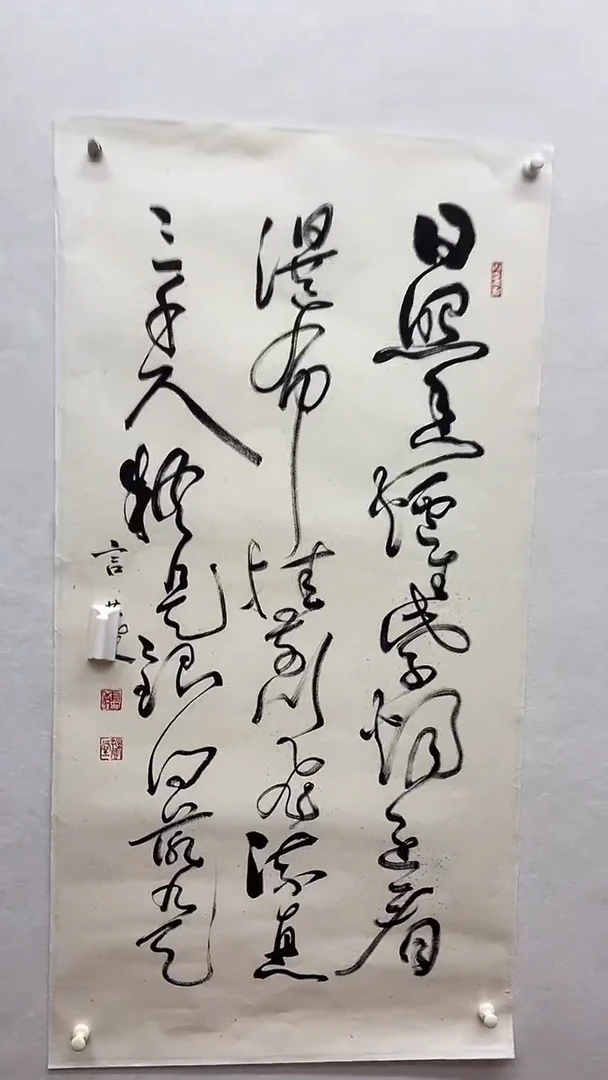 日照香爐生紫烟遥看
瀑布挂前川飛流直下
三千尺疑是銀河落九天
言